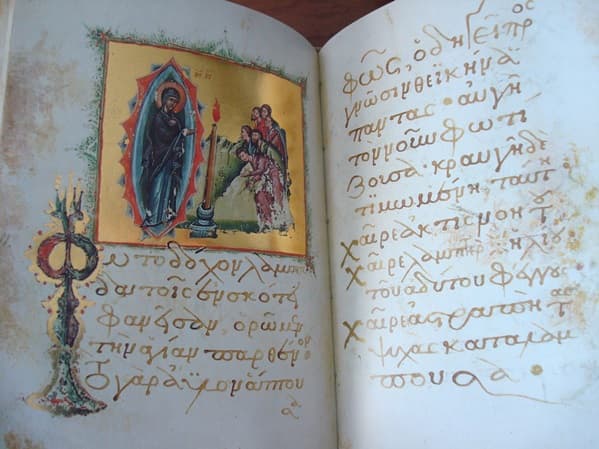 Φωτοδόχον λαμπά
δα τοῖς ἐν σκότει
φανεῖσαν, ὁρῶμεν
τὴν ἁγίαν παρθένον·
Ὁ γὰρ ἄϋλον ἅπτου
σα
φῶς, ὁδηγεῖ πρὸς
γνῶσιν θεϊκὴν ἅ
παντας· αὐγῇ
τὸν νοῦν φωτί
ζουσα· κραυγῇ δὲ
τιμωμένη
Χαῖρε ἀκτὶς νοητοῦ
Χαῖρε ἡλίου
τοῦ ἀδύτου φέγγους
Χαῖρε ἀστραπὴ τὰς
ψυχὰς καταλάμ
πουσα·